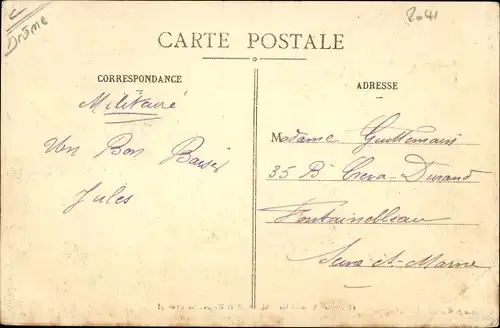 Drôme
2041
CARTE POSTALE
CORRESPONDANCE
ADRESSE
Militaire
Un Bon Baiser
Jules
Madame Guillemain
35 Bd Durand
Fontainebleau
Seine-et-Marne